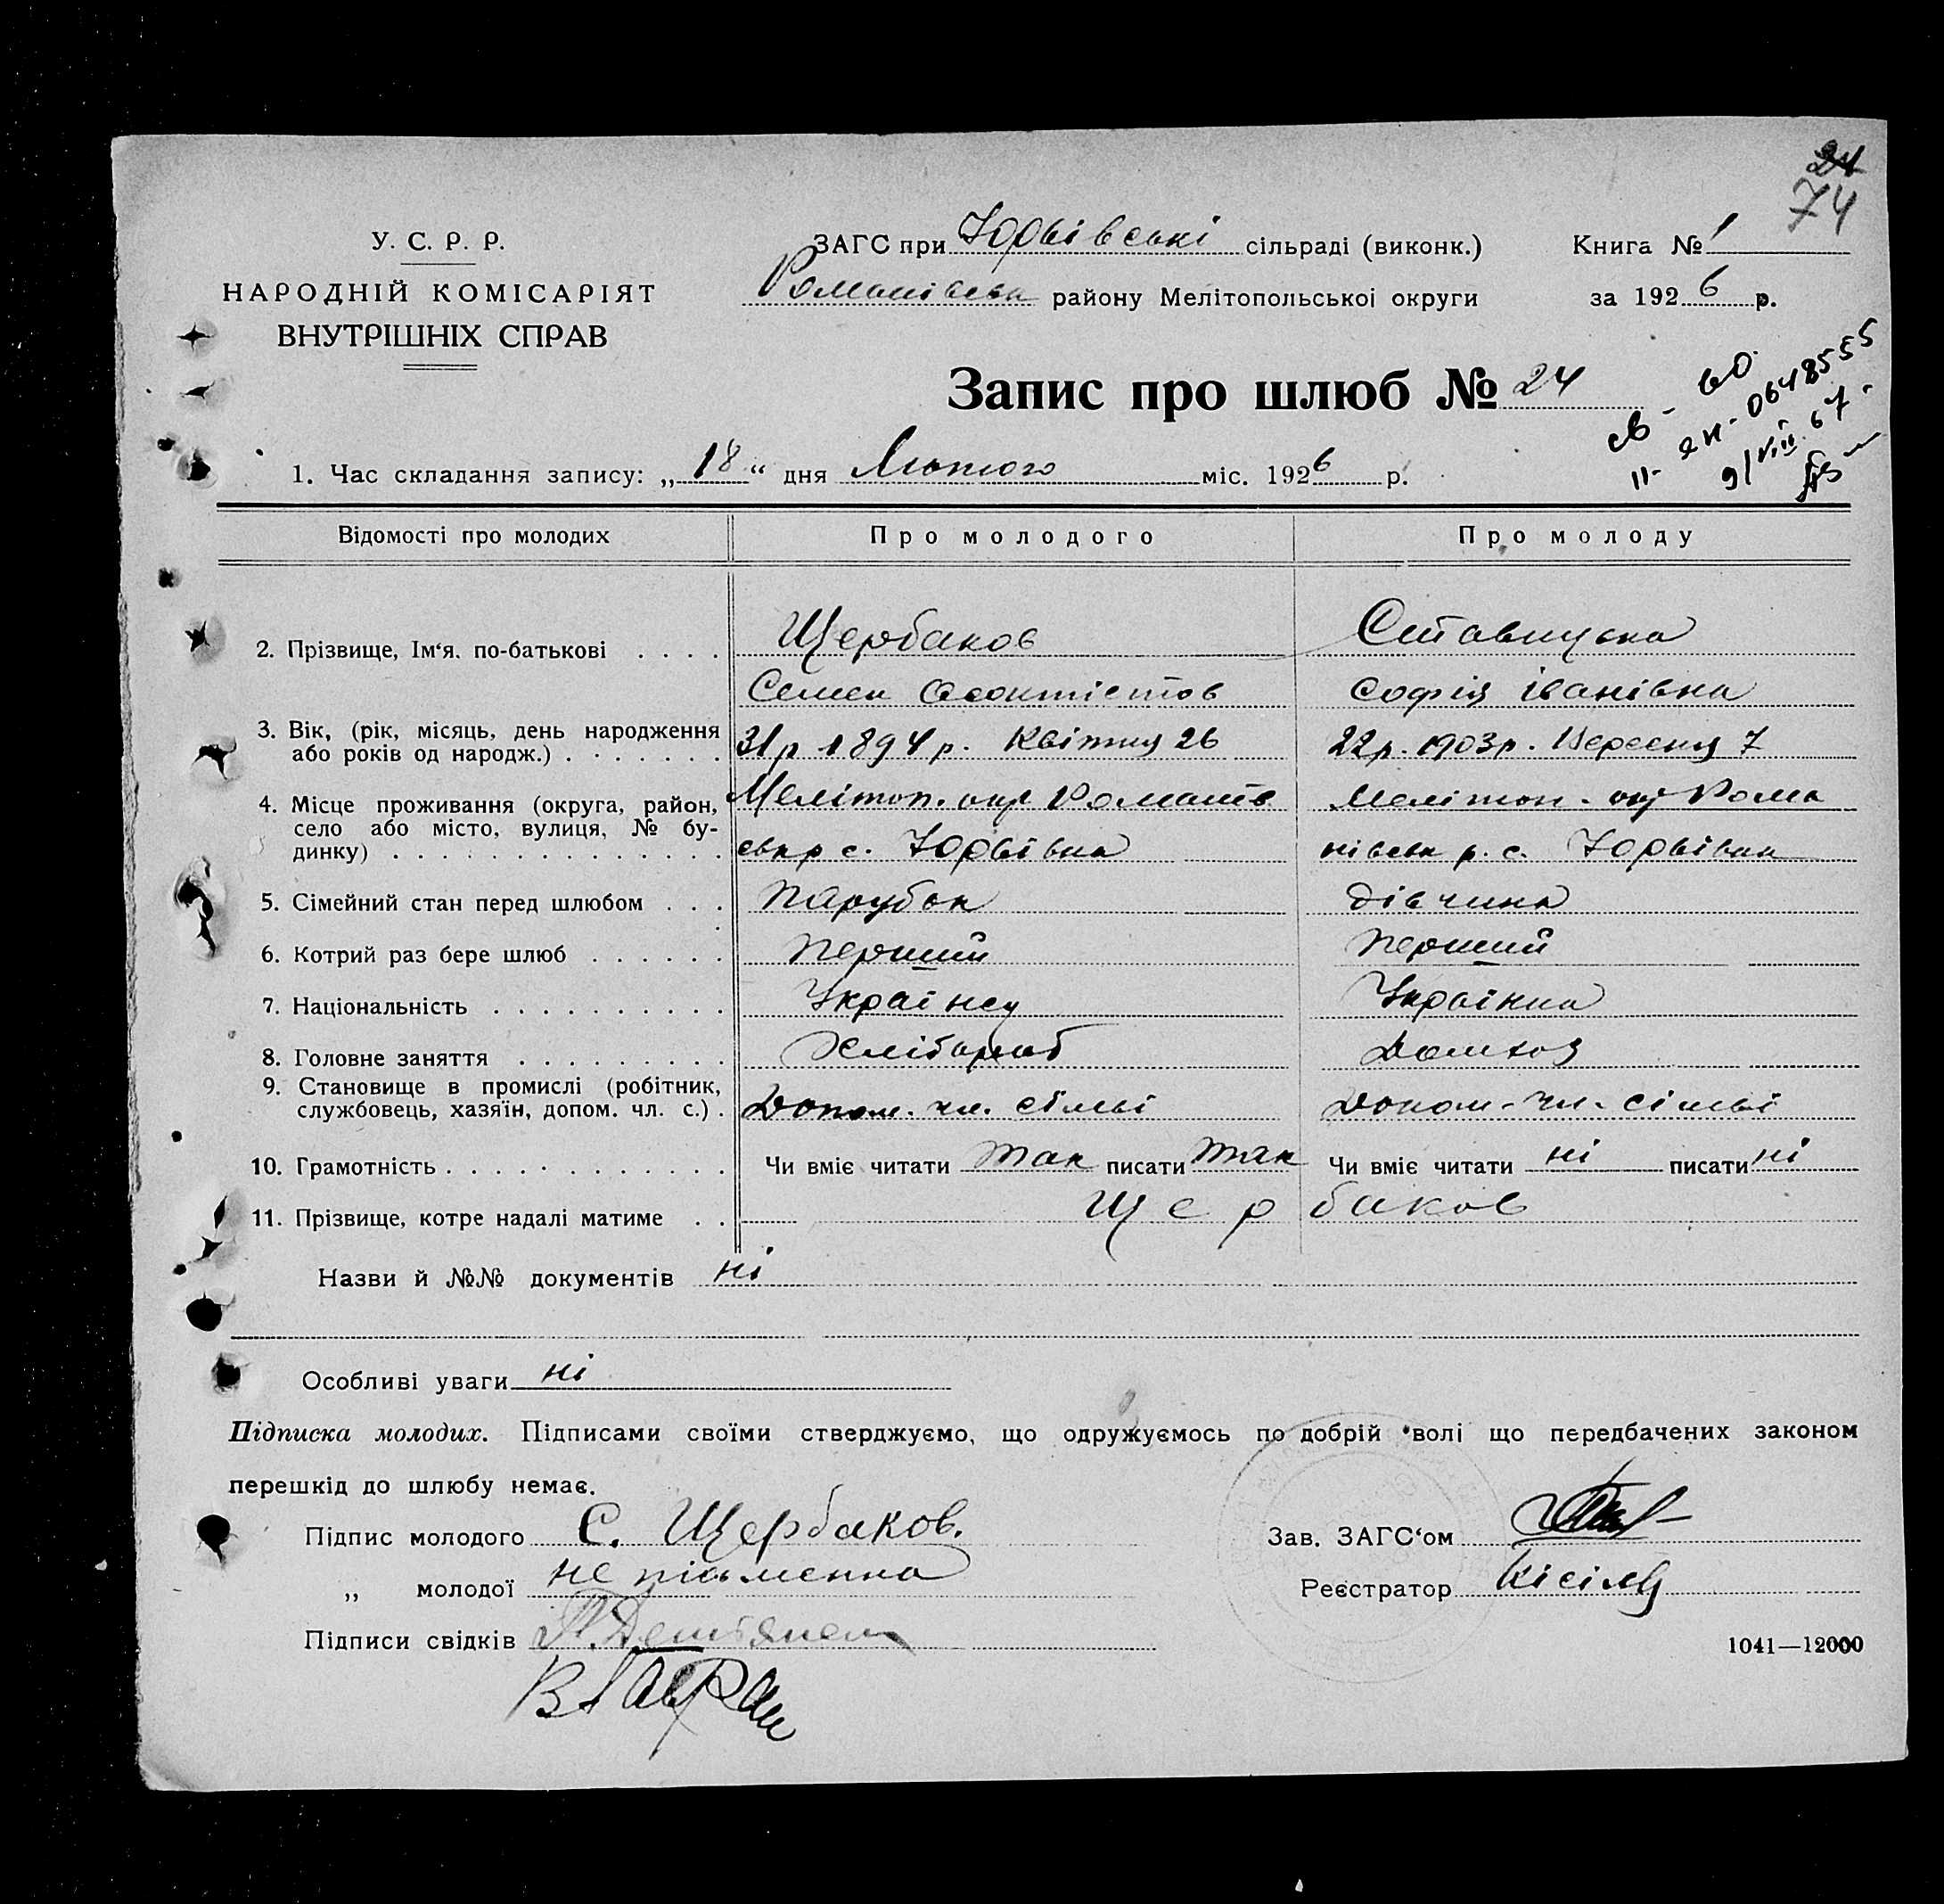 24
74
У. С. Р. Р.
НАРОДНІЙ КОМІСАРІЯТ
ВНУТРІШНІХ СПРАВ
ЗАГС при Юрьівські сільраді (виконк.)
Романівськ району Мелітопольської округи
Книга № 1
за 1926 р.
Запис про шлюб № 24
св - во
II - 0648555
9/VIII 67.
1. Час складання запису: „18“ дня Лютого міс. 1926 р.
Відомості про молодих Про молодого Про молоду
2. Прізвище, Ім‘я. по-батькові . . . . Щербаков
Семен
Софія Іванівна
3. Вік, (рік, місяць, день народження
або років од народж.) . . . . . . . 31 р 1894 р. Квітня 26 22 р. 1903 р. Вересня 7
4. Місце проживання (округа, район,
село або місто, вулиця, № бу-
динку) . . . . . . . . . . . . . .
Мелітоп. окр Романів Мелітоп. окр Рома
ськ р с. Юрьівка нівськ р. с. Юрьівка
5. Сімейний стан перед шлюбом . . . Парубок дівчина
6. Котрий раз бере шлюб . . . . . . Перший Перший
7. Національність . . . . . . . . . . Українец Українка
8. Головне заняття . . . . . . . . . Хлібороб Домхоз
9. Становище в промислі (робітник,
службовець, хазяїн, допом. чл. с.) . Допом. чл. сімьі Допом. чл. сімьі
10. Грамотність . . . . . . . . . . . . Чи вміє читати так писати так Чи вміє читати ні писати ні
11. Прізвище, котре надалі матиме . . Щербаков
Назви й №№ документів ні
Особливі уваги ні
Підписка молодих. Підписами своїми стверджуємо, що одружуємось по добрій волі що передбачених законом
перешкід до шлюбу немає.
Підпис молодого С. Щербаков.
„ молодої не письменна
Підписи свідків
Зав. ЗАГС‘ом
Реєстратор Кісіль
1041—12000